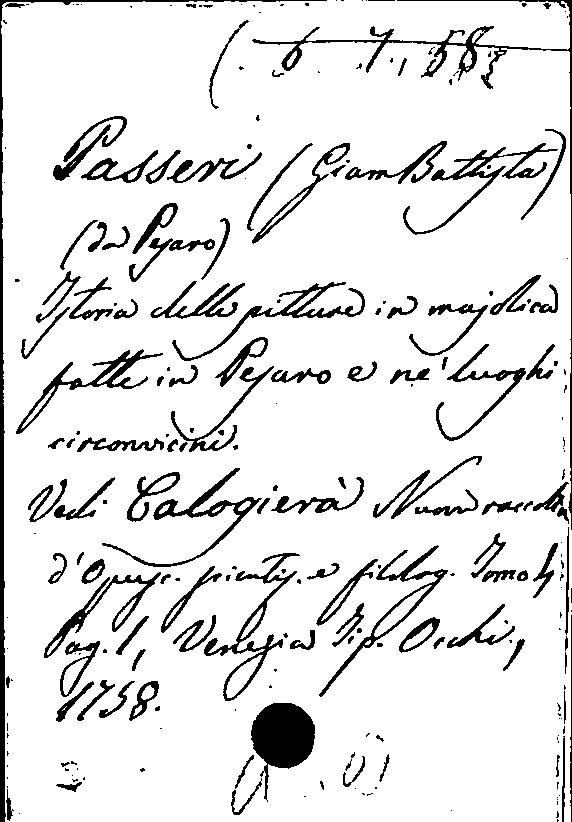 6 7., 58
Passeri (Giam Battista)
(da Pesaro)
Istoria delle pitture in majolica
fatte in Pesaro e ne' luoghi
circonvicini.
Vedi Calogierà Nuova raccolta
d'Opusc. scientif. e filolog. Tomo 4.
Pag. 1, Venezia Tip. Occhi,
1758.